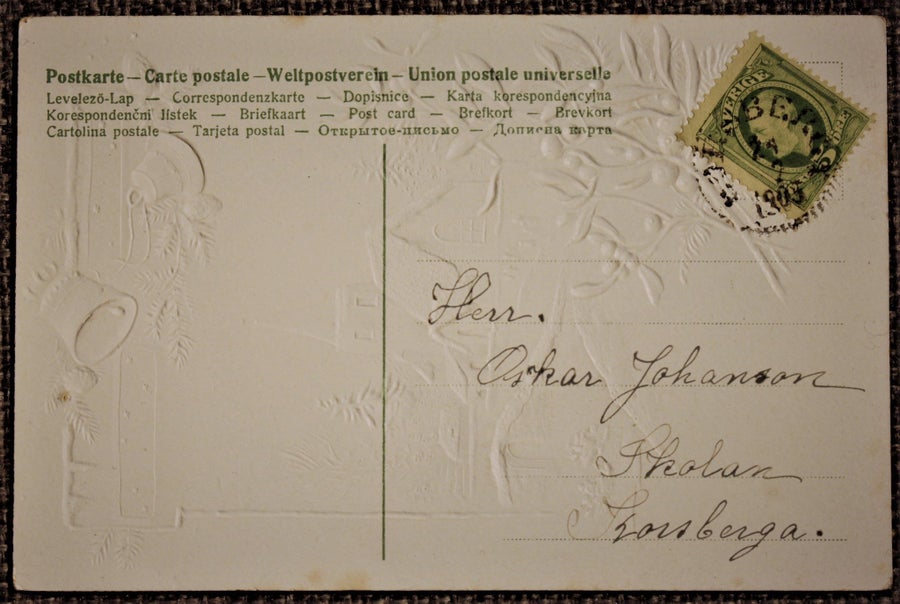 Postkarte — Carte postale — Weltpostverein — Union postale universelle
Levelező-Lap — Correspondenzkarte — Dopisnice — Karta korespondencyjna
Korespondenční lístek — Briefkaart — Post card — Brefkort — Brevkort
Cartolina postale — Tarjeta postal — Открытое-письмо — Дописна карта
SVERIGE
1909
Herr.
Oskar Johanson
Skolan
Korsberga.